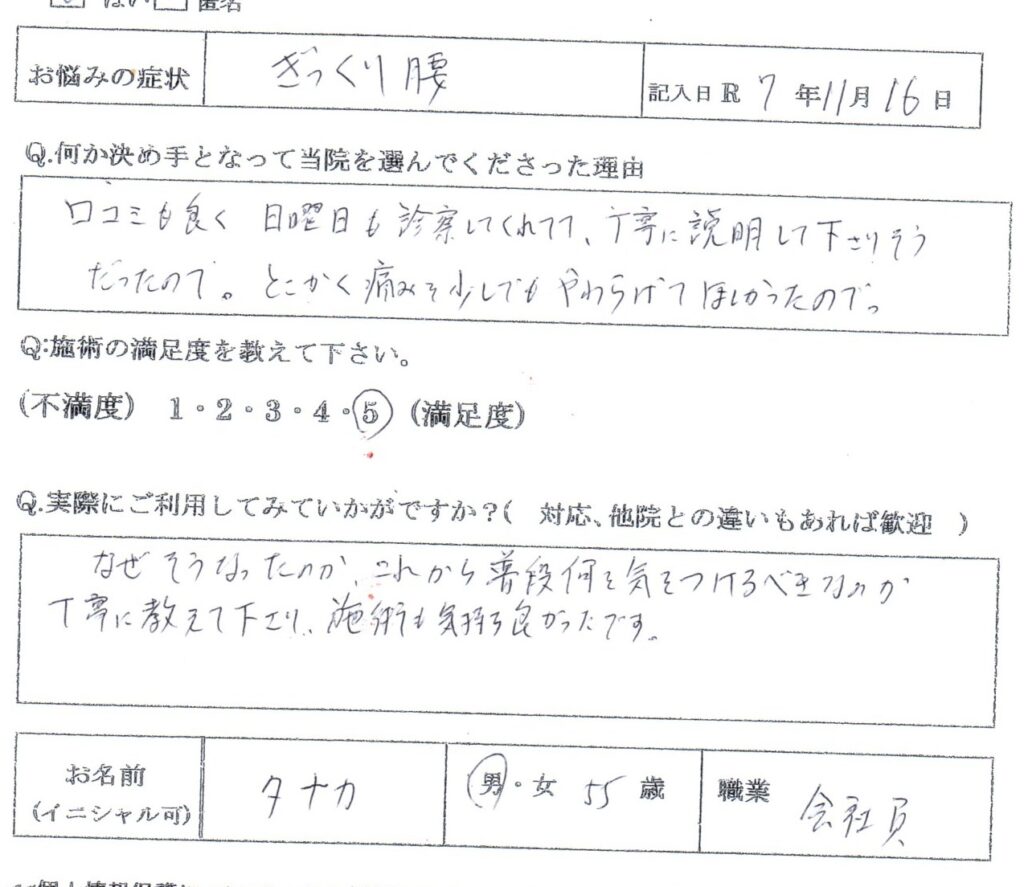 はい 匿名
お悩みの症状 ぎっくり腰 記入日 R 7 年 11 月 16 日
Q.何か決め手となって当院を選んでくださった理由
口コミも良く 日曜日も診察してくれてて、丁寧に説明して下さりそう
だったので。とにかく痛みを少しでもやわらげてほしかったので。
Q:施術の満足度を教えて下さい。
(不満度) 1・2・3・4・5 (満足度)
Q.実際にご利用してみていかがですか?( 対応、他院との違いもあれば歓迎 )
なぜそうなったのか、これから普段何を気をつけるべきなのか
丁寧に教えて下さり、施術も気持ち良かったです。
お名前 タナカ 男・女 55 歳 職業 会社員
(イニシャル可)